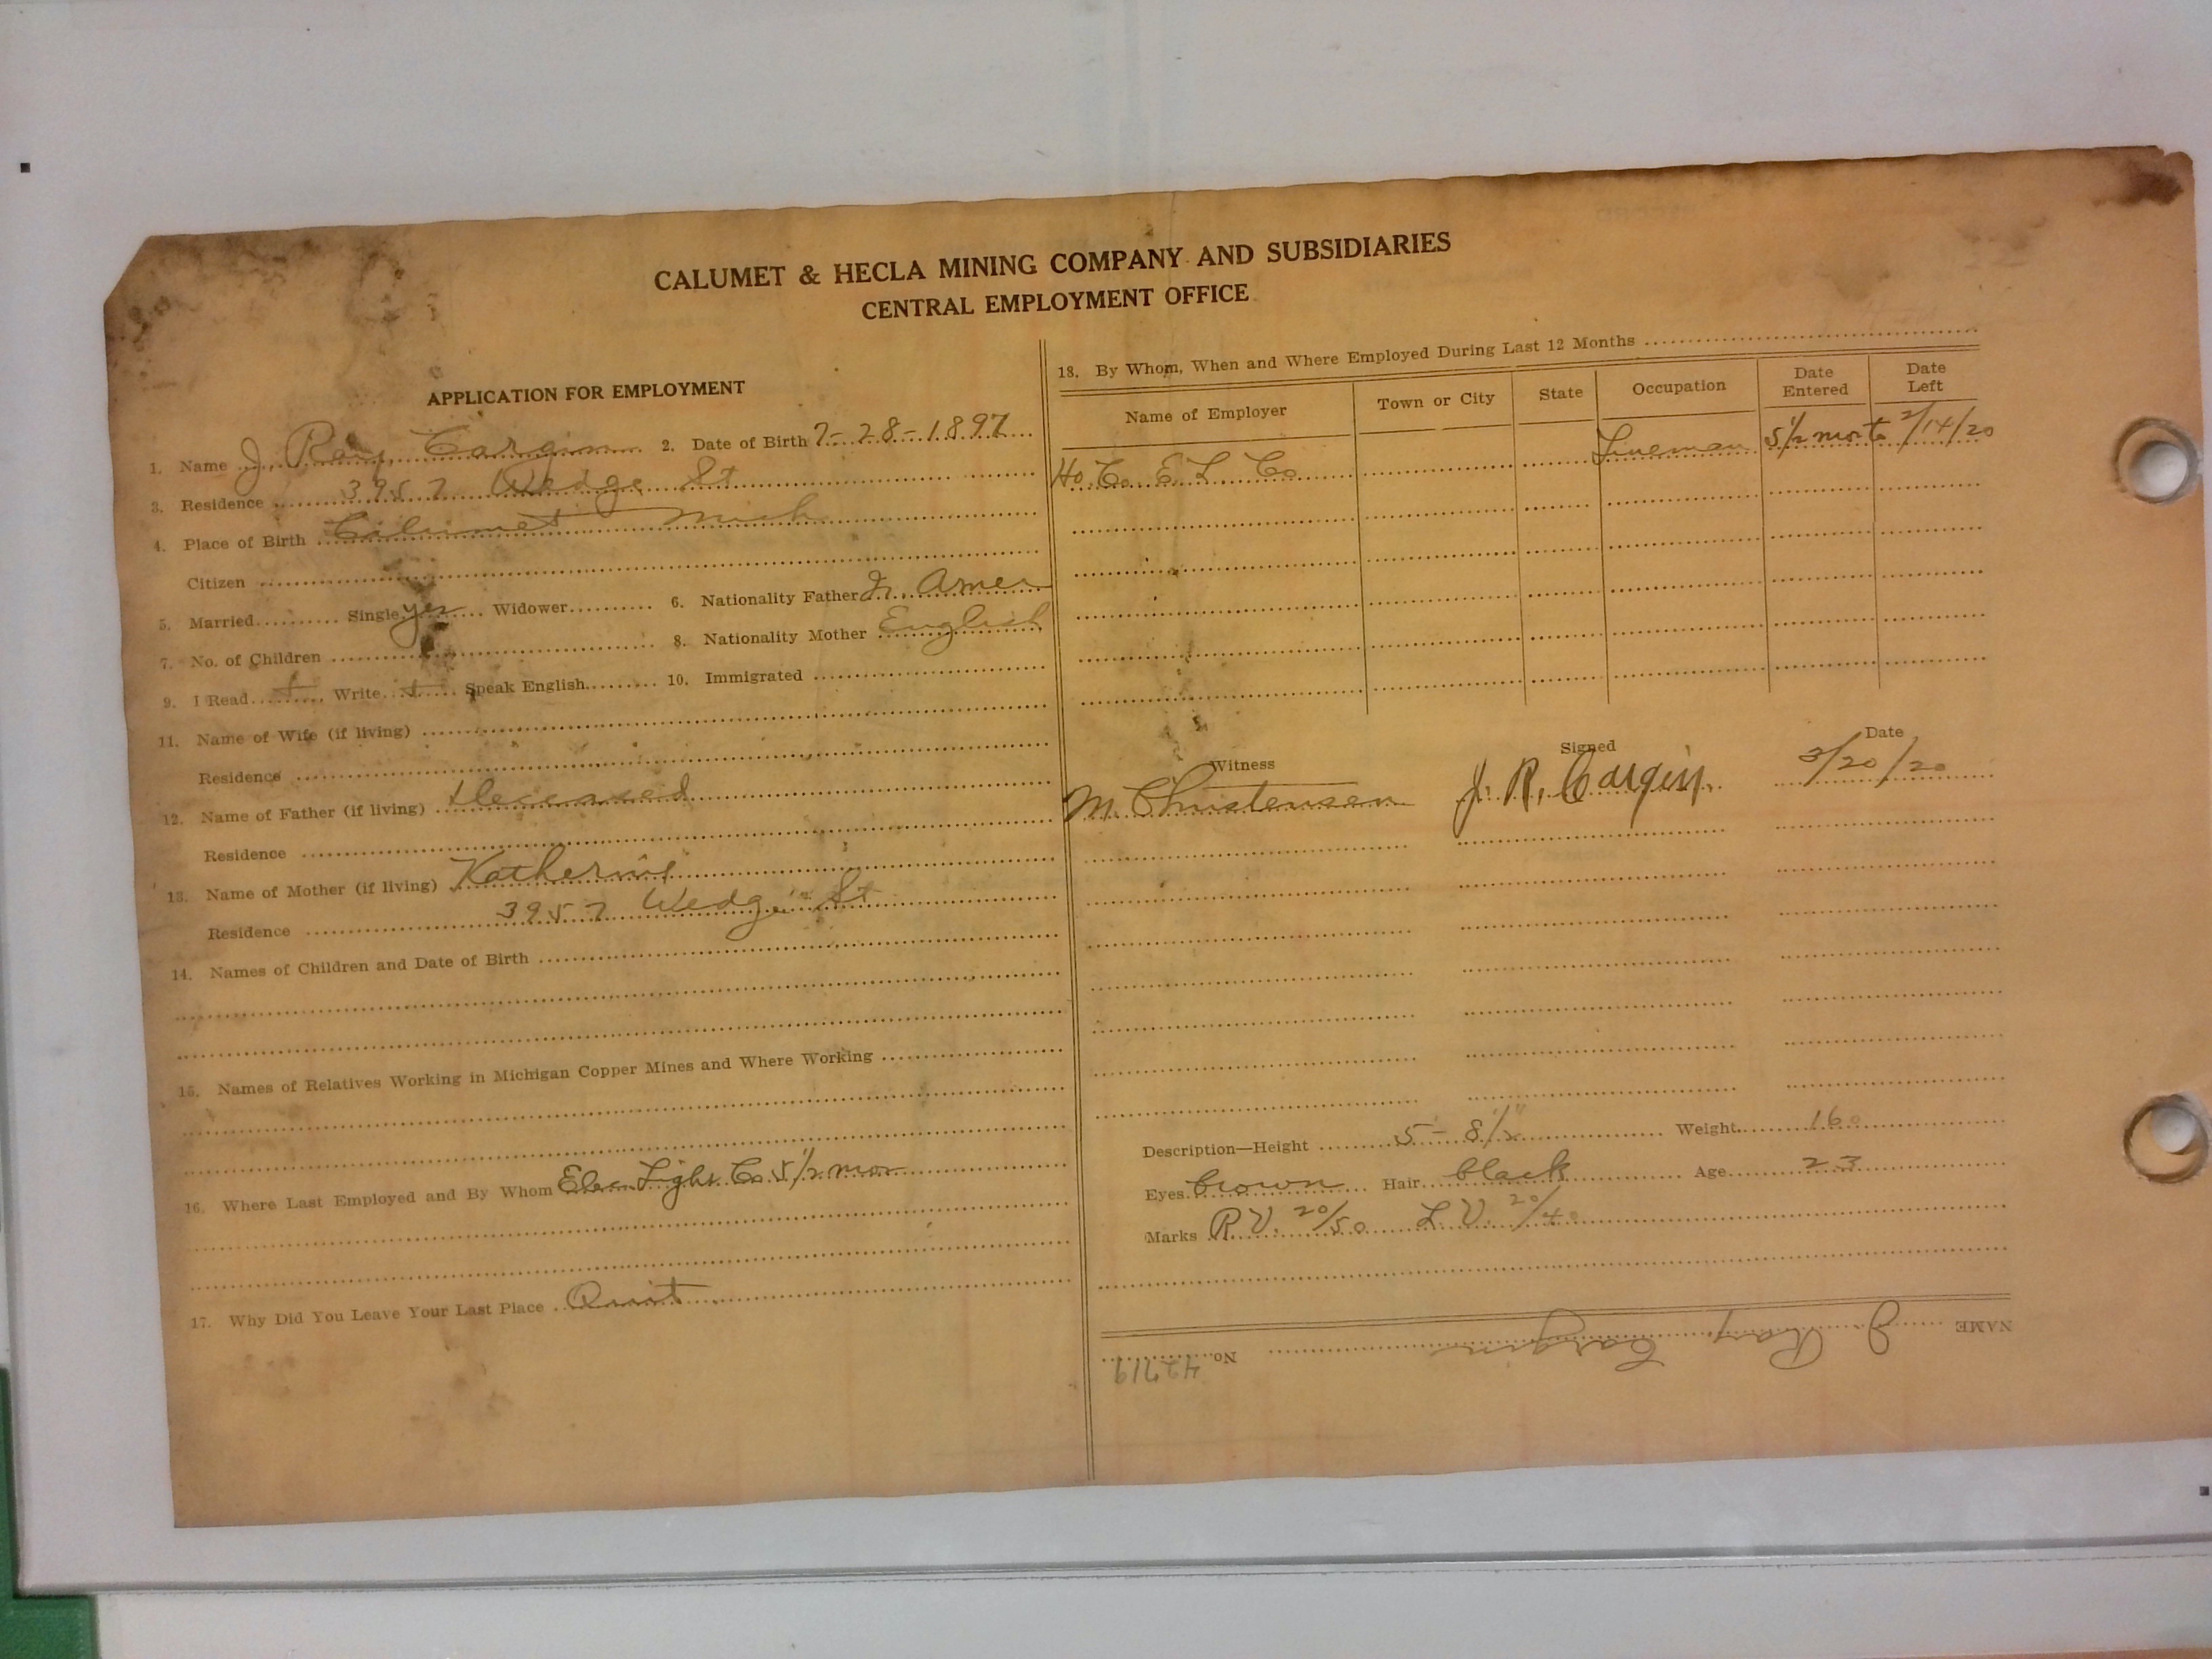 CALUMET & HECLA MINING COMPANY AND SUBSIDIARIES
CENTRAL EMPLOYMENT OFFICE
APPLICATION FOR EMPLOYMENT
1. Name J. Ray Cargin 2. Date of Birth 7-28-1897
3. Residence 3957 Wedge St
4. Place of Birth Calumet Mich
Citizen
5. Married Single yes Widower 6. Nationality Father Ir. Amer
7. No. of Children 8. Nationality Mother English
9. I Read + Write + Speak English 10. Immigrated
11. Name of Wife (if living)
Residence
12. Name of Father (if living) Deceased
Residence
13. Name of Mother (if living) Katherine
Residence 3957 Wedge St
14. Names of Children and Date of Birth
15. Names of Relatives Working in Michigan Copper Mines and Where Working
16. Where Last Employed and By Whom Elec Light Co 5 1/2 mos
17. Why Did You Leave Your Last Place Quit
18. By Whom, When and Where Employed During Last 12 Months
Name of Employer Town or City State Occupation Date Entered Date Left
Ho. Co. E. L. Co Lineman 5 1/2 mos to 2/14/20
Witness Signed Date
M. Christensen J. R. Cargin 3/20/20
Description—Height 5-8 1/2" Weight 160
Eyes brown Hair black Age 23
Marks R V. 20/50 L V. 20/40
NAME J. Ray Cargin No. 42719